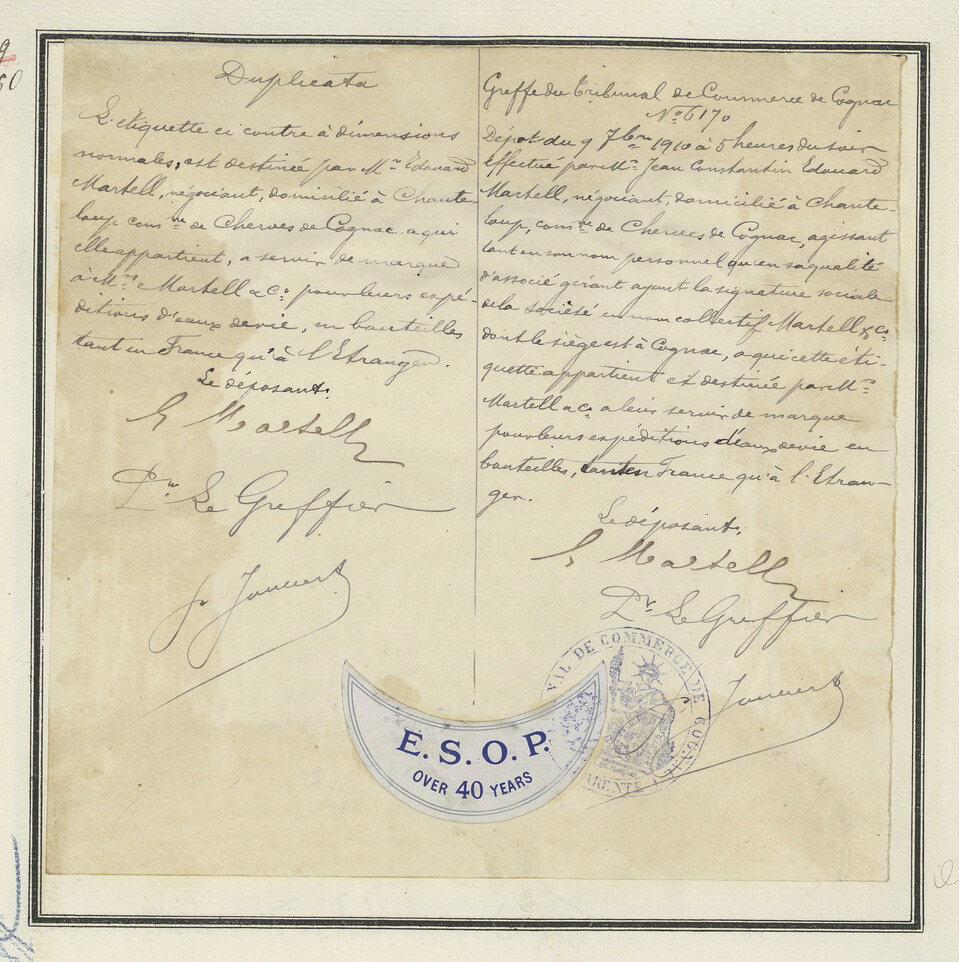 Duplicata
L'étiquette ci contre à dimensions
normales, est destinée par Mr Edouard
Martell, négociant, domicilié à Chante-
loup, comne de Cherves de Cognac a qui
elle appartient, a servir de marque
à Mrs Martell & Co pour leurs expé-
ditions d'eaux de vie, en bouteilles
tant en France qu'à l'Etranger.
Le déposant.
E Martell
Pr Le Greffier
Greffe du Tribunal de Commerce de Cognac
No 6170
Dépot du 9 7bre 1910 à 5 heures du soir
Effectué par Mr Jean Constantin Edouard
Martell, négociant, domicilié à Chante-
loup, comne de Cherves de Cognac, agissant
tant en son nom personnel qu'en sa qualité
d'associé gérant ayant la signature sociale
de la Société en nom collectif Martell & Co
dont le siège est à Cognac, a qui cette éti-
quette appartient et destinée par Mrs
Martell & Co a leur servir de marque
pour leurs expéditions d'eaux de vie en
bouteilles, tant en France qu'à l'Etran-
ger.
Le déposant.
E Martell
Pr Le Greffier
E.S.O.P.
OVER 40 YEARS
DE COMMERCE DE COGNAC